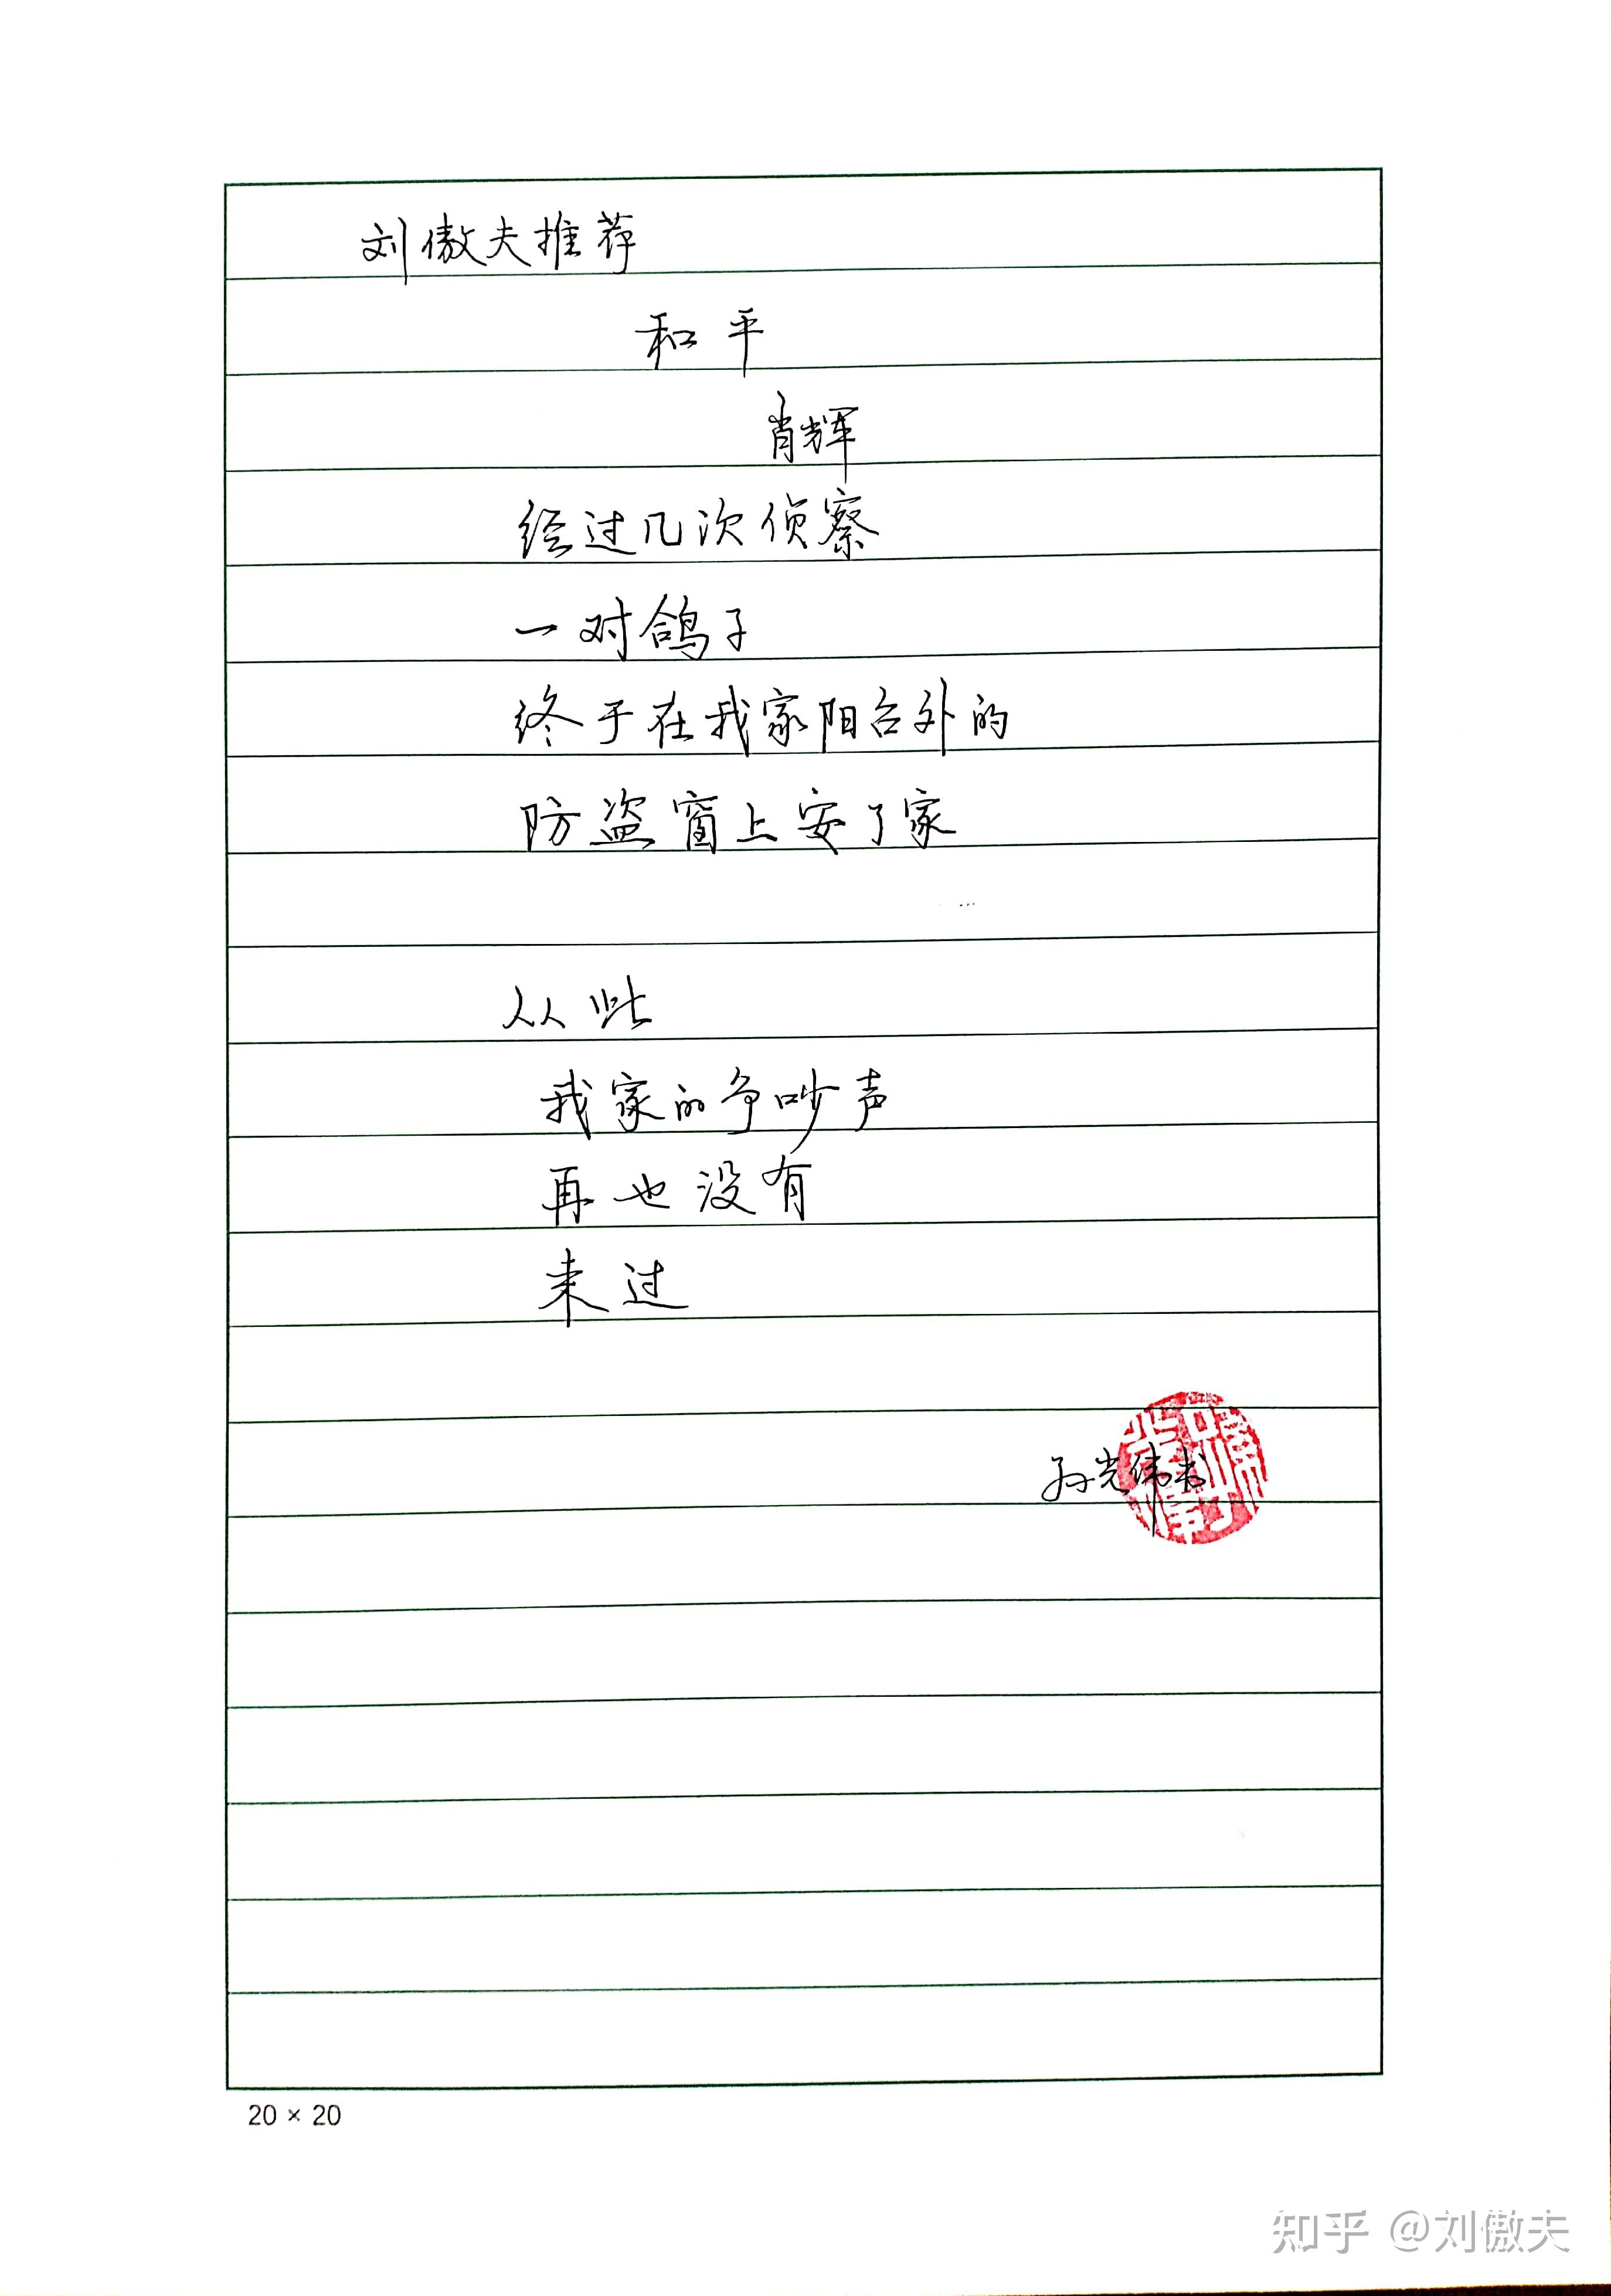 刘傲夫推荐
和平
肖辉
经过几次侦察
一对鸽子
终于在我家阳台外的
防盗窗上安了家
从此
我家的争吵声
再也没有
来过
孙光伟书
20×20
知乎 @刘傲夫